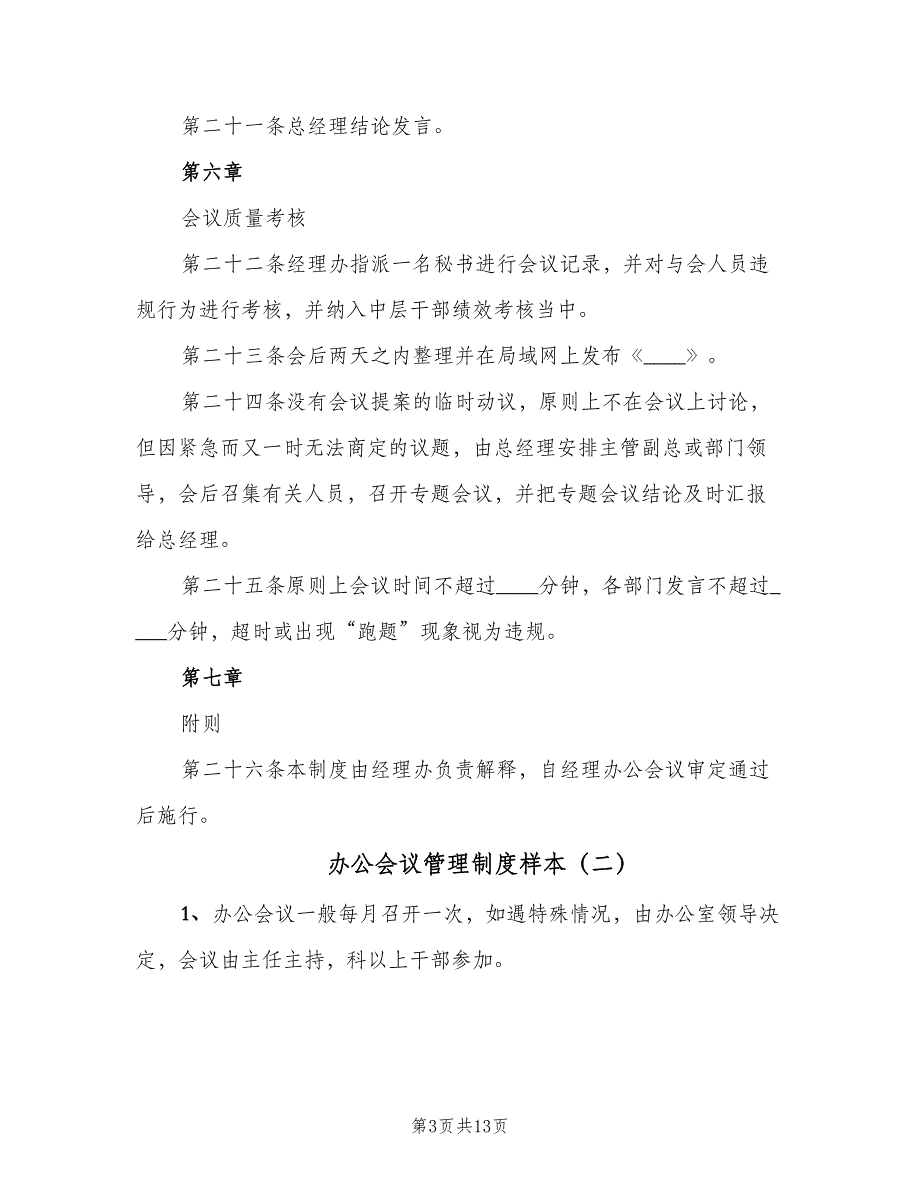 第二十一条总经理结论发言。
第六章
会议质量考核
第二十二条经理办指派一名秘书进行会议记录，并对与会人员违
规行为进行考核，并纳入中层干部绩效考核当中。
第二十三条会后两天之内整理并在局域网上发布《____》。
第二十四条没有会议提案的临时动议，原则上不在会议上讨论，
但因紧急而又一时无法商定的议题，由总经理安排主管副总或部门领
导，会后召集有关人员，召开专题会议，并把专题会议结论及时汇报
给总经理。
第二十五条原则上会议时间不超过____分钟，各部门发言不超过_
___分钟，超时或出现“跑题”现象视为违规。
第七章
附则
第二十六条本制度由经理办负责解释，自经理办公会议审定通过
后施行。
办公会议管理制度样本（二）
1、办公会议一般每月召开一次，如遇特殊情况，由办公室领导决
定，会议由主任主持，科以上干部参加。
第3页共13页